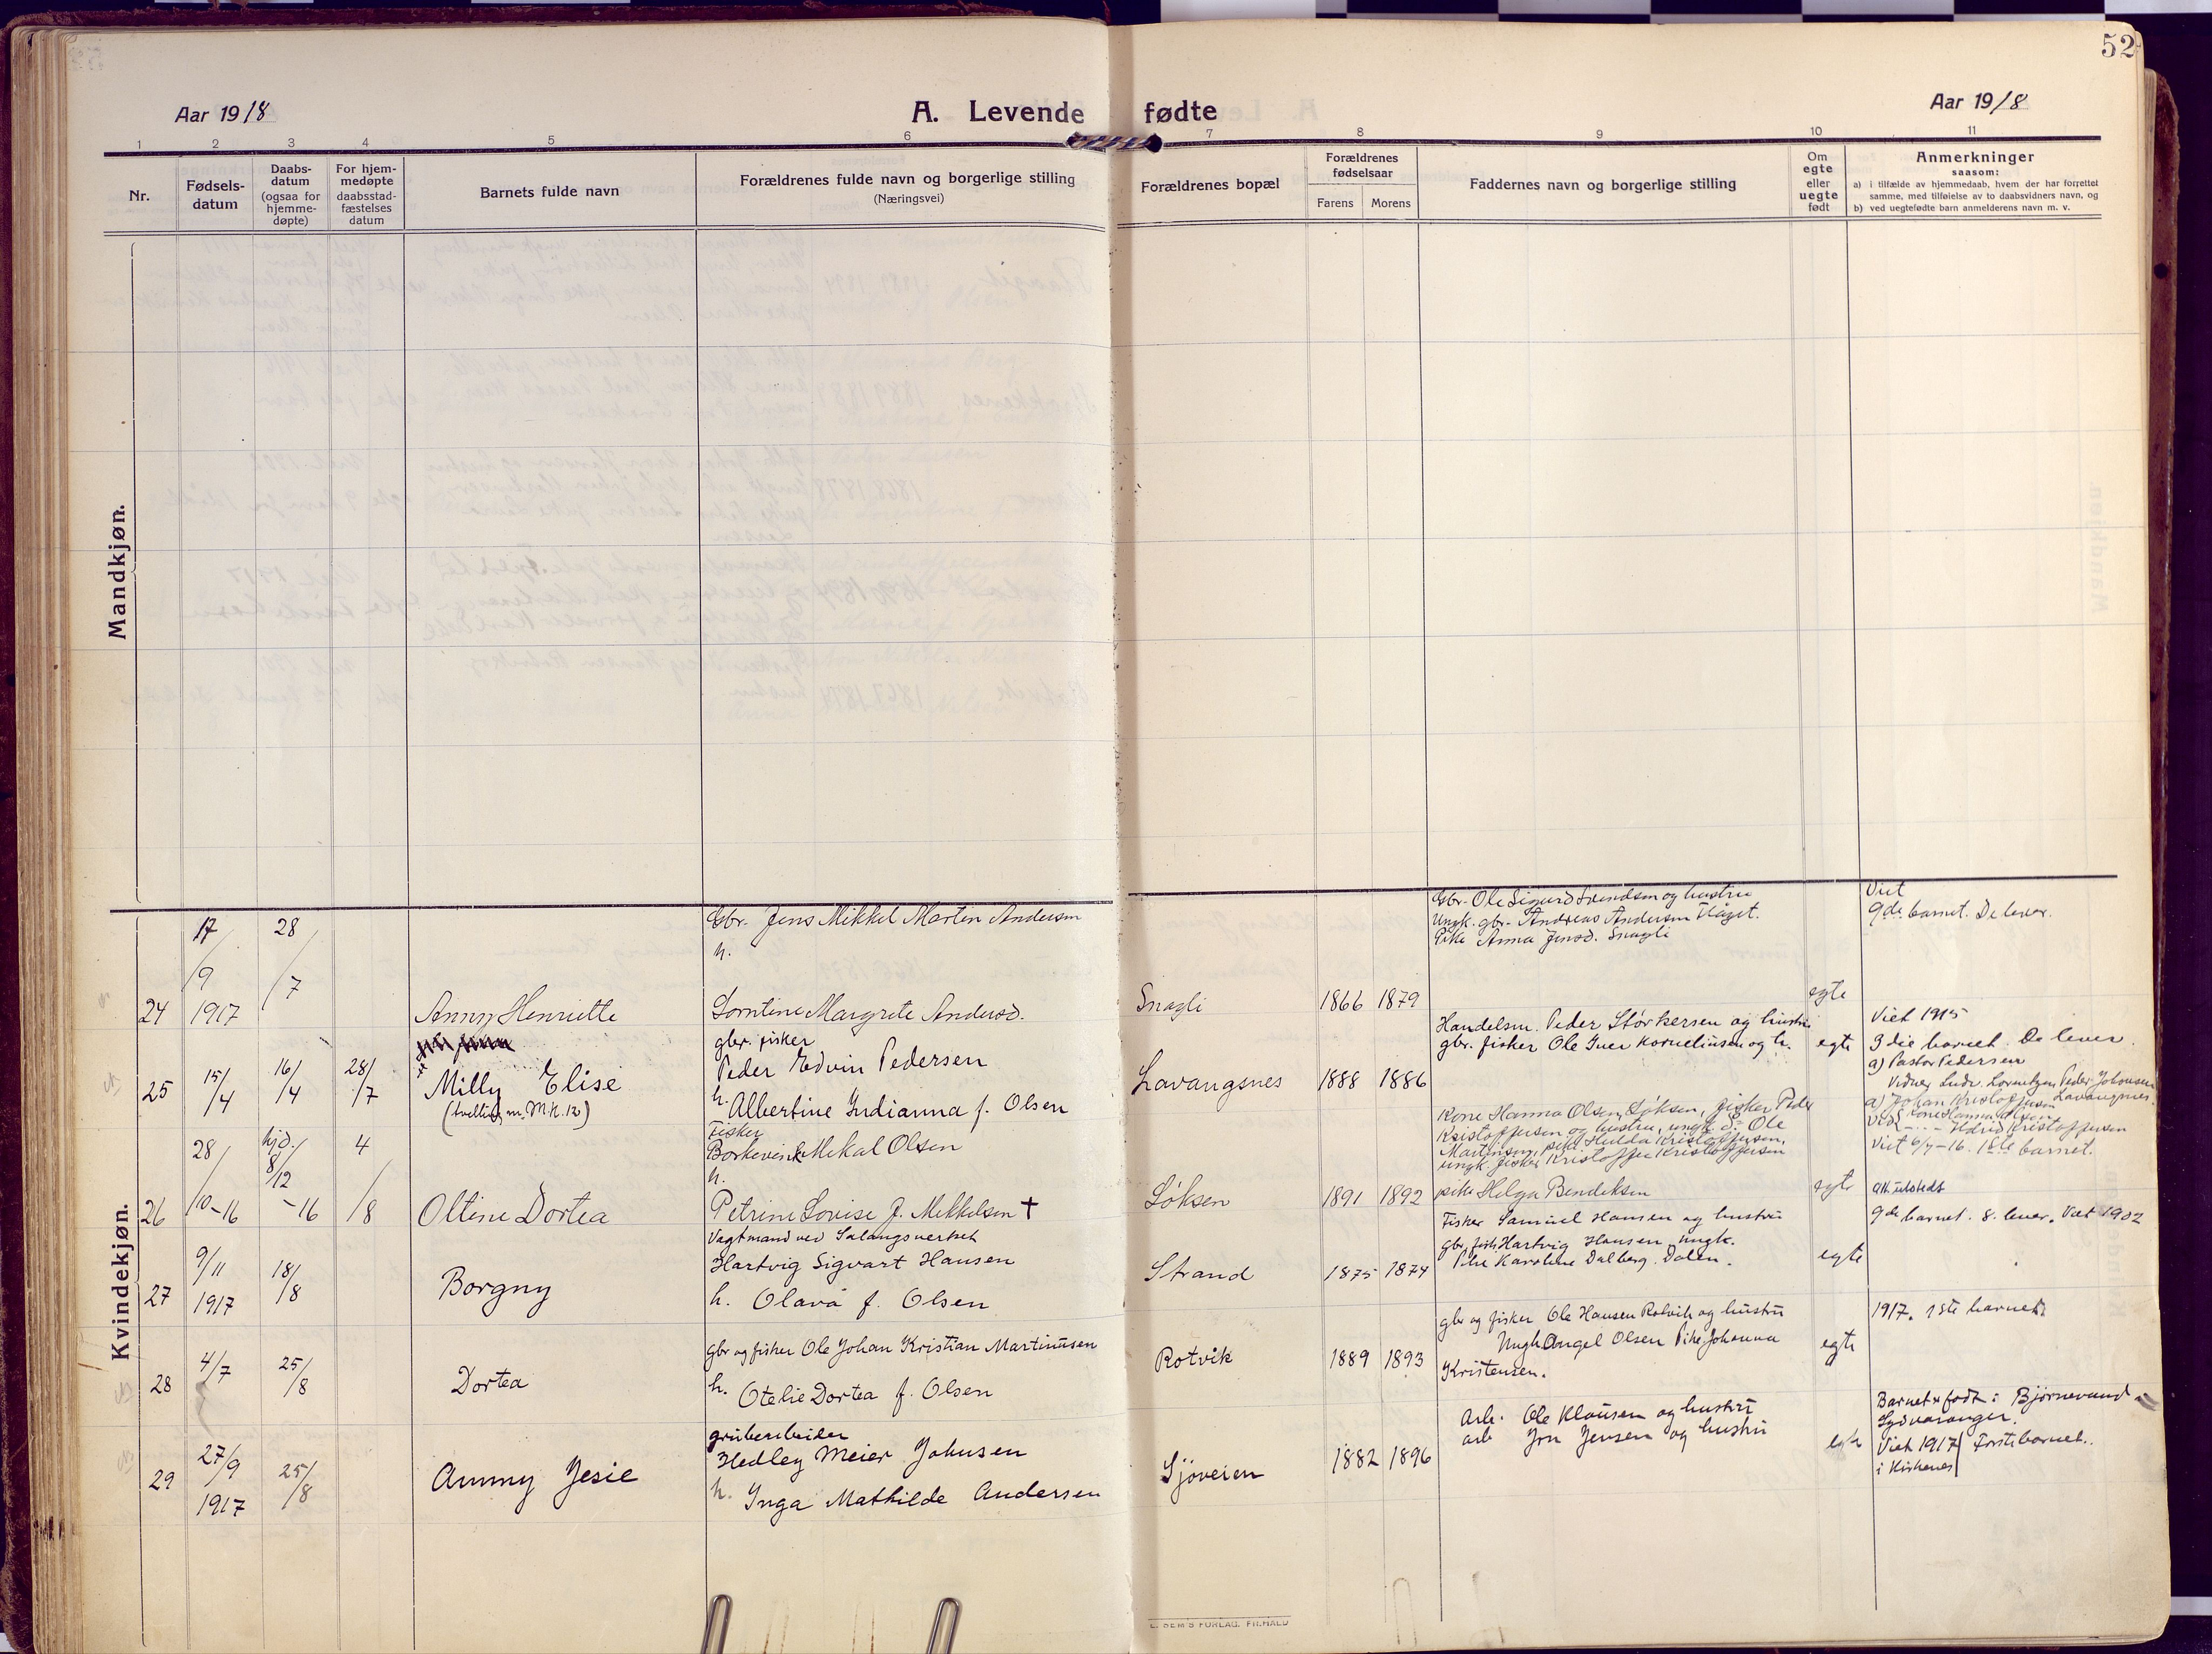 52
Aar 1918
A. Levende fødte
Aar 1918
1 2 3 4 5 6 7 8 9 10 11
Nr.
Fødsels-
datum
Daabs-
datum
(ogsaa for
hjemme-
døpte)
For hjem-
medøpte
daabsstad-
fæstelses
datum
Barnets fulde navn
Forældrenes fulde navn og borgerlige stilling
(Næringsvei)
Forældrenes bopæl
Forældrenes
fødselsaar
Farens Morens
Faddernes navn og borgerlige stilling
Om
egte
eller
uegte
født
Anmerkninger
saasom:
a) i tilfælde av hjemmedaab, hvem der har forrettet
samme, med tilføielse av to daabsvidners navn, og
b) ved uegtefødte barn anmelderens navn m. v.
Mandkjøn.
Kvindekjøn.
24
17/9
1917
28/7
Anny Henriette
Gbr. Jens Mikkel Martin Andersen
h.
Lorntine Margrete Andersd.
Snagli
1866 1879
Gbr. Ole Sigurd Svendsen og hustru
Ungk. gbr. Andreas Andersen Flaget.
Pike Anna Jensd. Snagli
egte
Viet
9de barnet. De lever.
25
15/4
16/4
28/7
Milly Elise
(tvilling m. M.K. 12)
gbr. fisker
Peder Edvin Pedersen
h. Albertine Indianna f. Olsen
Lavangsnes
1888 1886
Handelsm. Peder Størkersen og hustru
gbr. fisker Ole Iver Korneliussen og h.
egte
Viet 1915
3die barnet. De lever.
a) Pastor Pedersen
Vidner Ludv. Lorentzen, Peder Johansen
Lavangsnes.
26
28/10-16
hjd. 8/12 -16
4/8
Oltine Dortea
Fisker
Borkevink Mekal Olsen
h.
Petrine Lovise f. Mikkelsen †
Løksen
1891 1892
Kone Hanna Olsen, Løksen, fisker Peder
Kristoffersen og hustru, ungk. do Ole
Martinsen, pike Hulda Kristoffersen,
ungk. fisker Kristoffer Kristoffersen
pike Helga Bendiksen
egte
a) Johan Kristoffersen
Vid. Kone Hanna Olsen
Kristoffersen
Viet 6/7-16. 1ste barnet.
27
9/11
1917
18/8
Borgny
Vagtmand ved Salangsverket
Hartvig Sigvart Hansen
h. Olava f. Olsen
Strand
1875 1874
Fisker Samuel Hansen og hustru
gbr. fisk. Hartvig Hansen ungk.
Pike Karoline Dalberg. Dalen.
egte
9de barnet. 8. lever. Viet 1902
28
4/7
25/8
Dortea
gbr og fisker Ole Johan Kristian Martinusen
h. Otelie Dortea f. Olsen
Rotvik
1889 1893
gbr og fisker Ole Hansen Rotvik og hustru
Ungk Angel Olsen Pike Johanna
Kristensen.
egte
1917. 1ste barnet.
29
27/9
1917
25/8
Ammy Jesie
grubearbeider
Hedley Meier Johnsen
h. Inga Mathilde Andersen
Sjøveien
1882 1896
Arb. Ole Klausen og hustru
arb Jon Jensen og hustru
egte
Barnet er født i Bjørnevand i
Sydvaranger.
Viet 1917 Første barnet.
i Kirkenes